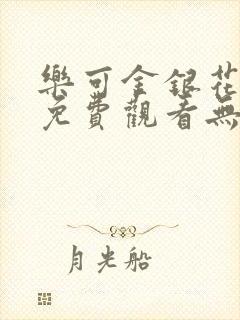 樂可金銀花
免費觀看無
月光船